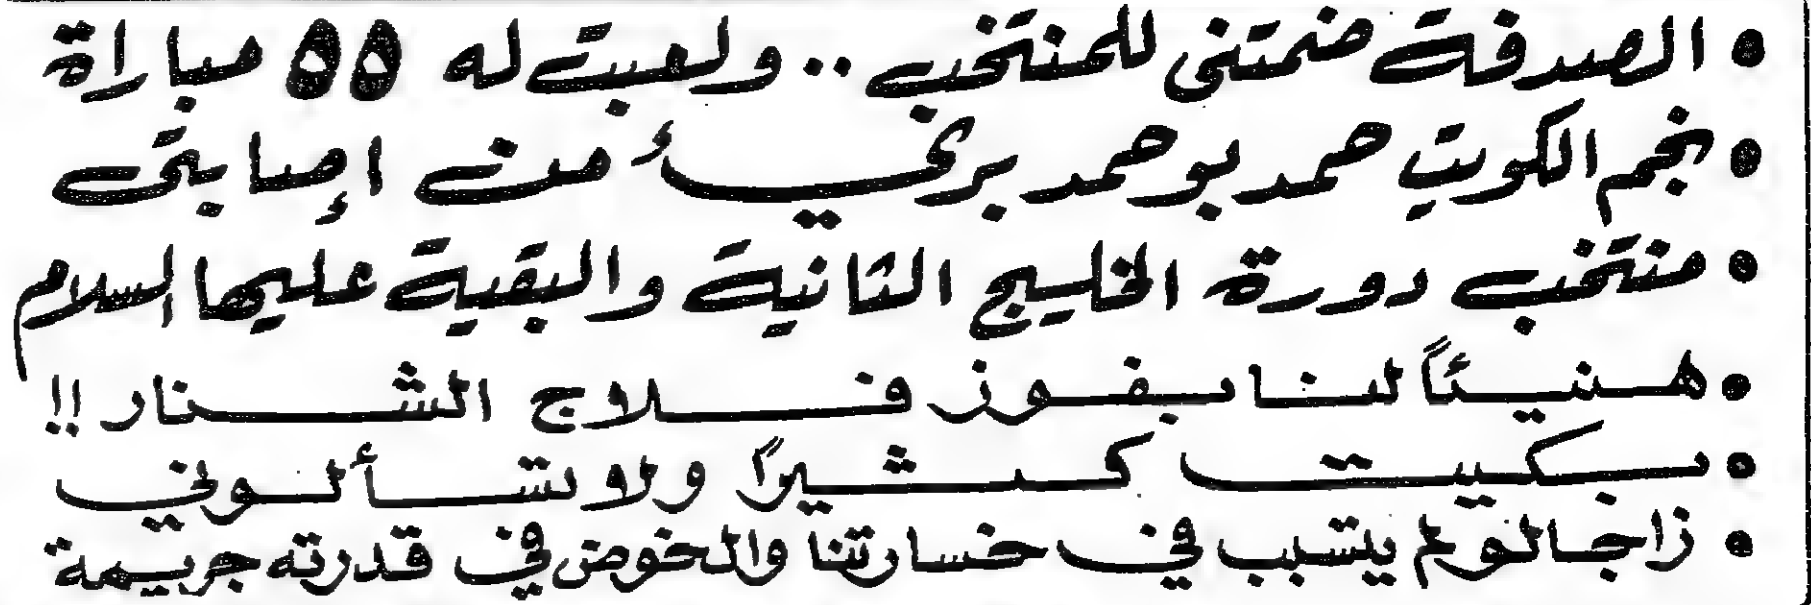 • الصدفة ضمتنى للمنتخب .. ولعبت له ٥٥ مباراة
• نجم الكويت حمد بوحمد بريء من إصابتى
• منتخب دورة الخليج الثانية والبقية عليها السلام
• هنيئاً لنا بفوز فلاج الشنار !!
• بكيت كثيراً ولا تسألوني
• زاجالو لم يتسبب في خسارتنا والخوض في قدرته جريمة